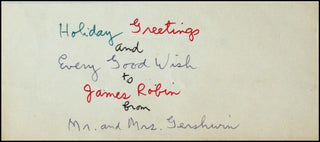 Holiday Greetings
and
Every Good Wish
to
James Robin
from
Mr. and Mrs. Gershwin